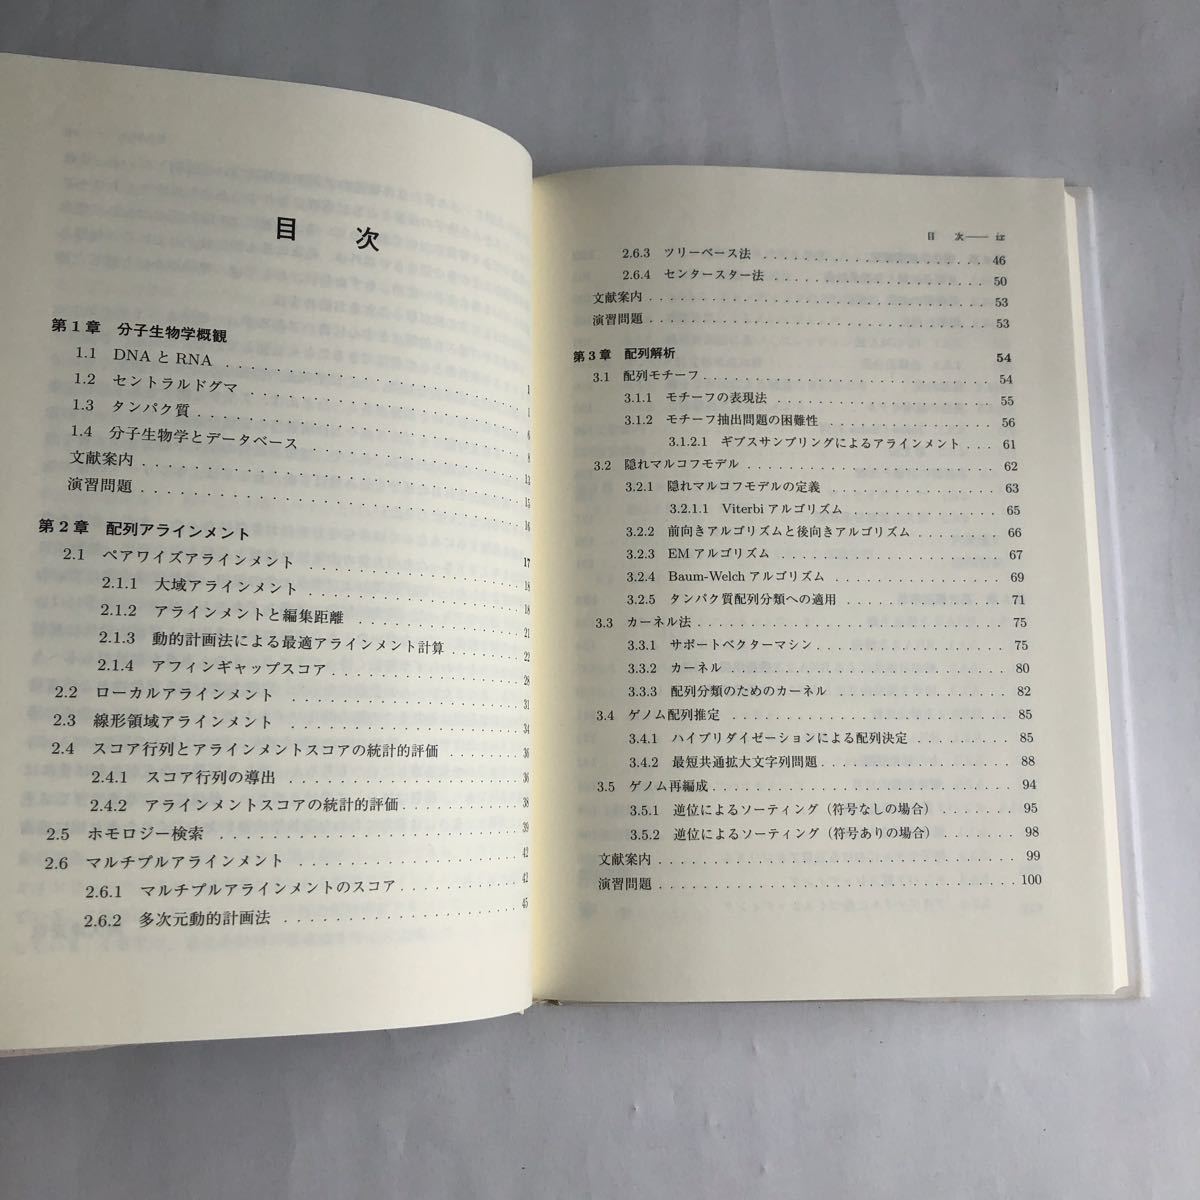 目 次
第1章 分子生物学概観 1
1.1 DNA と RNA 1
1.2 セントラルドグマ 6
1.3 タンパク質 8
1.4 分子生物学とデータベース 13
文献案内 15
演習問題 16
第2章 配列アラインメント 17
2.1 ペアワイズアラインメント 18
2.1.1 大域アラインメント 18
2.1.2 アラインメントと編集距離 21
2.1.3 動的計画法による最適アラインメント計算 22
2.1.4 アフィンギャップスコア 28
2.2 ローカルアラインメント 31
2.3 線形領域アラインメント 34
2.4 スコア行列とアラインメントスコアの統計的評価 36
2.4.1 スコア行列の導出 36
2.4.2 アラインメントスコアの統計的評価 38
2.5 ホモロジー検索 39
2.6 マルチプルアラインメント 42
2.6.1 マルチプルアラインメントのスコア 42
2.6.2 多次元動的計画法 45
目 次 —— ix
2.6.3 ツリーベース法 46
2.6.4 センタースター法 50
文献案内 53
演習問題 53
第3章 配列解析 54
3.1 配列モチーフ 54
3.1.1 モチーフの表現法 55
3.1.2 モチーフ抽出問題の困難性 56
3.1.2.1 ギブスサンプリングによるアラインメント 61
3.2 隠れマルコフモデル 62
3.2.1 隠れマルコフモデルの定義 63
3.2.1.1 Viterbi アルゴリズム 65
3.2.2 前向きアルゴリズムと後向きアルゴリズム 66
3.2.3 EM アルゴリズム 67
3.2.4 Baum-Welch アルゴリズム 69
3.2.5 タンパク質配列分類への適用 71
3.3 カーネル法 75
3.3.1 サポートベクターマシン 75
3.3.2 カーネル 80
3.3.3 配列分類のためのカーネル 82
3.4 ゲノム配列推定 85
3.4.1 ハイブリダイゼーションによる配列決定 85
3.4.2 最短共通拡大文字列問題 88
3.5 ゲノム再編成 94
3.5.1 逆位によるソーティング（符号なしの場合） 95
3.5.2 逆位によるソーティング（符号ありの場合） 98
文献案内 99
演習問題 100